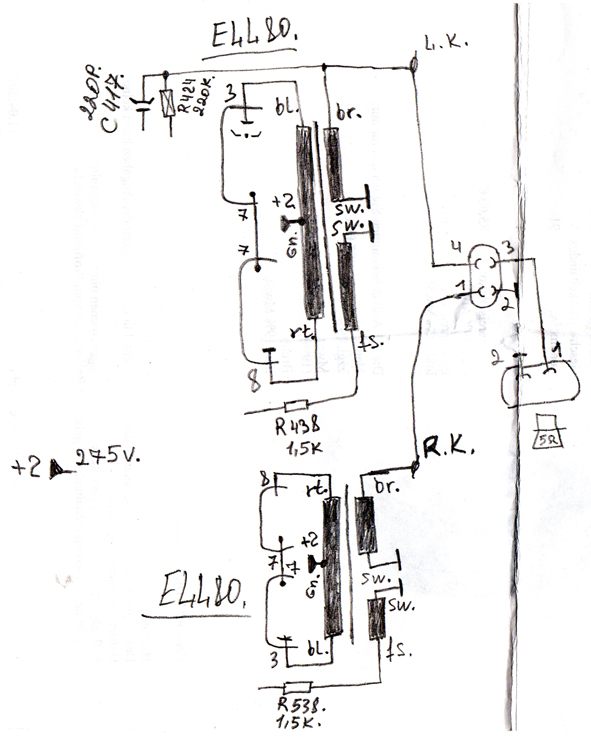 ELL80.
L.K.
220P.
C417.
R424
220K.
3
bl.
br.
+2
sw.
7
sw.
Gn.
7
4
3
1
2
rt.
fs.
8
2
1
R438
1,5K
5Ω
+2
275V.
R.K.
8
rt.
br.
+2
7
7
G.
sw.
sw.
ELL80.
3
bl.
fs.
R538.
1,5K.